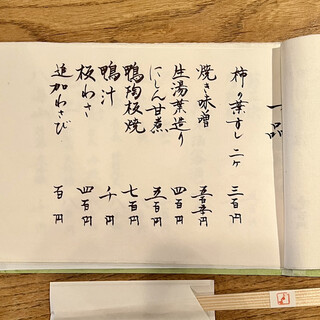 一品
柿の葉すし 二ヶ 三百円
焼き味噌 五百五十円
生湯葉造り 四百円
にしん甘煮 五百円
鴨陶板焼 七百円
鴨汁 千円
板わさ 四百円
追加わさび 百円